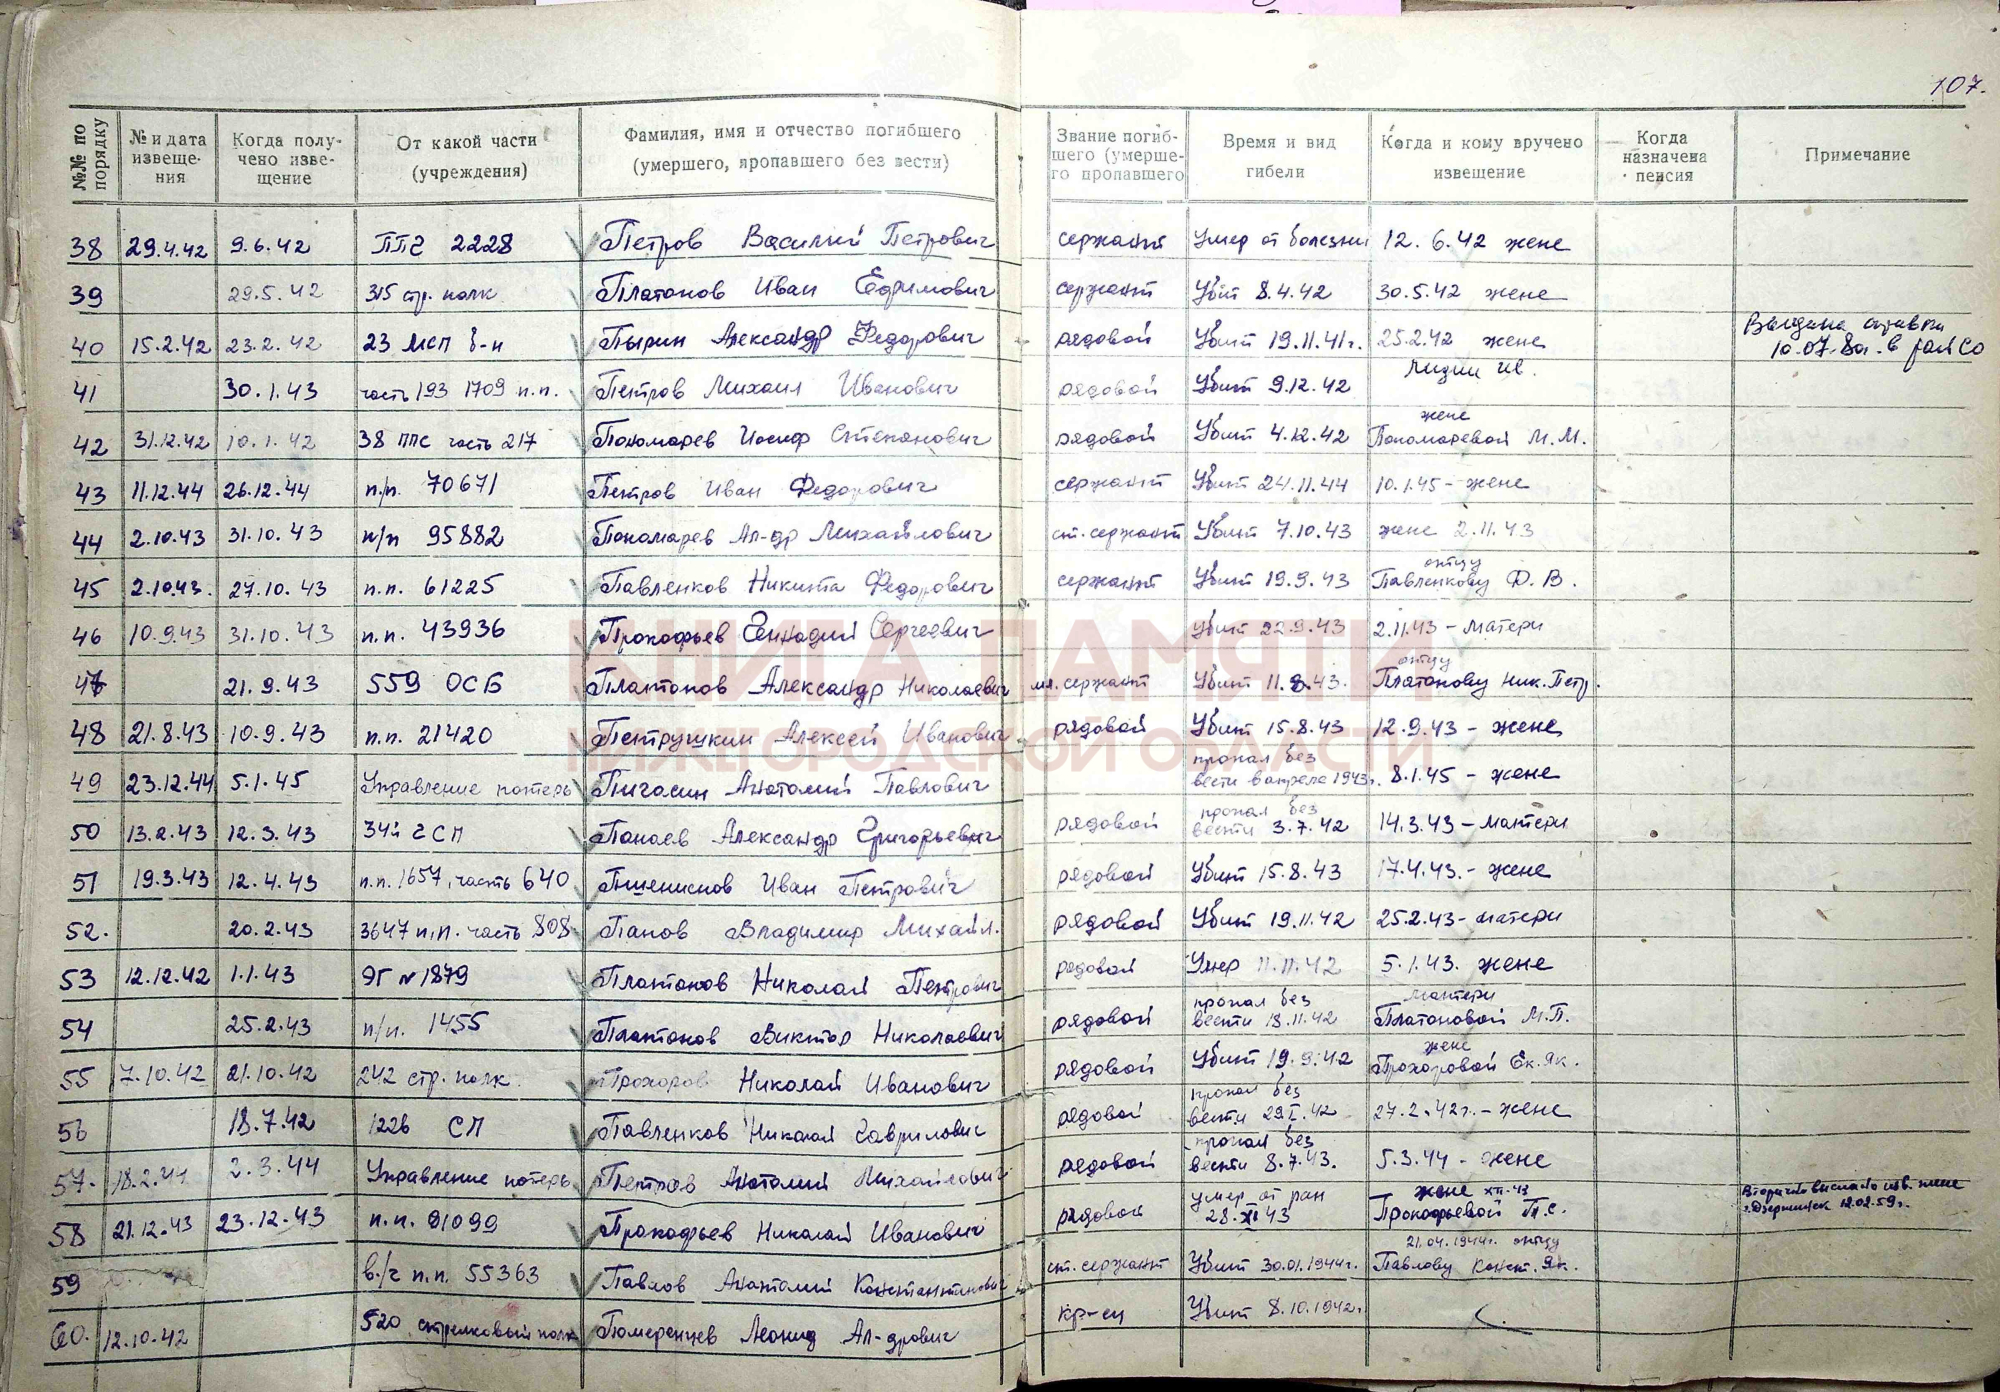 107.
№№ по порядку | № и дата извещения | Когда получено извещение | От какой части (учреждения) | Фамилия, имя и отчество погибшего (умершего, пропавшего без вести) | Звание погибшего (умершего пропавшего | Время и вид гибели | Когда и кому вручено извещение | Когда назначена пенсия | Примечание
38 | 29.4.42 | 9.6.42 | ППС 2228 | Петров Василий Петрович | сержант | Умер от болезни | 12.6.42 жене
39 | | 29.5.42 | 315 стр. полк | Платонов Иван Ефимович | сержант | Убит 8.4.42 | 30.5.42 жене
40 | 15.2.42 | 23.2.42 | 23 МСП б-н | Пырин Александр Федорович | рядовой | Убит 19.11.41г. | 25.2.42 жене Лидии Ив. | | Выдана справка 10.07.80г. в райСО
41 | | 30.1.43 | часть 193 1709 п.п. | Петров Михаил Иванович | рядовой | Убит 9.12.42
42 | 31.12.42 | 10.1.42 | 38 ППС часть 217 | Пономарев Иосиф Степанович | рядовой | Убит 4.12.42 | жене Пономаревой М.М.
43 | 11.12.44 | 26.12.44 | п.п. 70671 | Петров Иван Федорович | сержант | Убит 24.11.44 | 10.1.45 - жене
44 | 2.10.43 | 31.10.43 | п/п 95882 | Пономарев Ал-др Михайлович | ст. сержант | Убит 7.10.43 | жене 2.11.43
45 | 2.10.43. | 27.10.43 | п.п. 61225 | Павленков Никита Федорович | сержант | Убит 19.9.43 | отцу Павленкову Ф.В.
46 | 10.9.43 | 31.10.43 | п.п. 43936 | Прокофьев Геннадий Сергеевич | | Убит 22.9.43 | 2.11.43 - матери
47 | | 21.9.43 | 559 ОСБ | Платонов Александр Николаевич | мл. сержант | Убит 11.8.43. | отцу Платонову Ник. Петр.
48 | 21.8.43 | 10.9.43 | п.п. 21420 | Петрушкин Алексей Иванович | рядовой | Убит 15.8.43 | 12.9.43 - жене
49 | 23.12.44 | 5.1.45 | Управление потерь | Пигасин Анатолий Павлович | | пропал без вести в апреле 1943г. | 8.1.45 - жене
50 | 13.2.43 | 12.3.43 | 34й ГСП | Панаев Александр Григорьевич | рядовой | пропал без вести 3.7.42 | 14.3.43 - матери
51 | 19.3.43 | 12.4.43 | п.п. 1657, часть 640 | Пшениснов Иван Петрович | рядовой | Убит 15.8.43 | 17.4.43. - жене
52. | | 20.2.43 | 3647 п.п. часть 808 | Панов Владимир Михайл. | рядовой | Убит 19.11.42 | 25.2.43 - матери
53 | 12.12.42 | 1.1.43 | ЭГ № 1879 | Платонов Николай Петрович | рядовой | Умер 11.11.42 | 5.1.43. жене
54 | | 25.2.43 | п/п. 1455 | Платонов Виктор Николаевич | рядовой | пропал без вести 18.11.42 | матери Платоновой М.П.
55 | 7.10.42 | 21.10.42 | 242 стр. полк | Прохоров Николай Иванович | рядовой | Убит 19.9.42 | жене Прохоровой Ек. Як.
56 | | 18.7.42 | 1226 СП | Павленков Николай Гаврилович | рядовой | пропал без вести 29.I.42 | 27.2.42г. - жене
57. | 18.2.44 | 2.3.44 | Управление потерь | Петров Анатолий Михайлович | рядовой | пропал без вести 8.7.43. | 5.3.44 - жене
58 | 21.12.43 | 23.12.43 | п.п. 91099 | Прокофьев Николай Иванович | рядовой | умер от ран 28.XI 43 | жене XII-43 Прокофьевой Т.С. | | Вторично выслано изв. жене г. Дзержинск 12.02.59г.
59 | | | в/ч п.п. 55363 | Павлов Анатолий Константинович | ст. сержант | Убит 30.01.1944г. | 21.04.1944г. отцу Павлову Конст. Як.
60. | 12.10.42 | | 520 стрелковый полк | Померенцев Леонид Ал-дрович | кр-ец | Убит 8.10.1942г.
КНИГА ПАМЯТИ
НИЖЕГОРОДСКОЙ ОБЛАСТИ